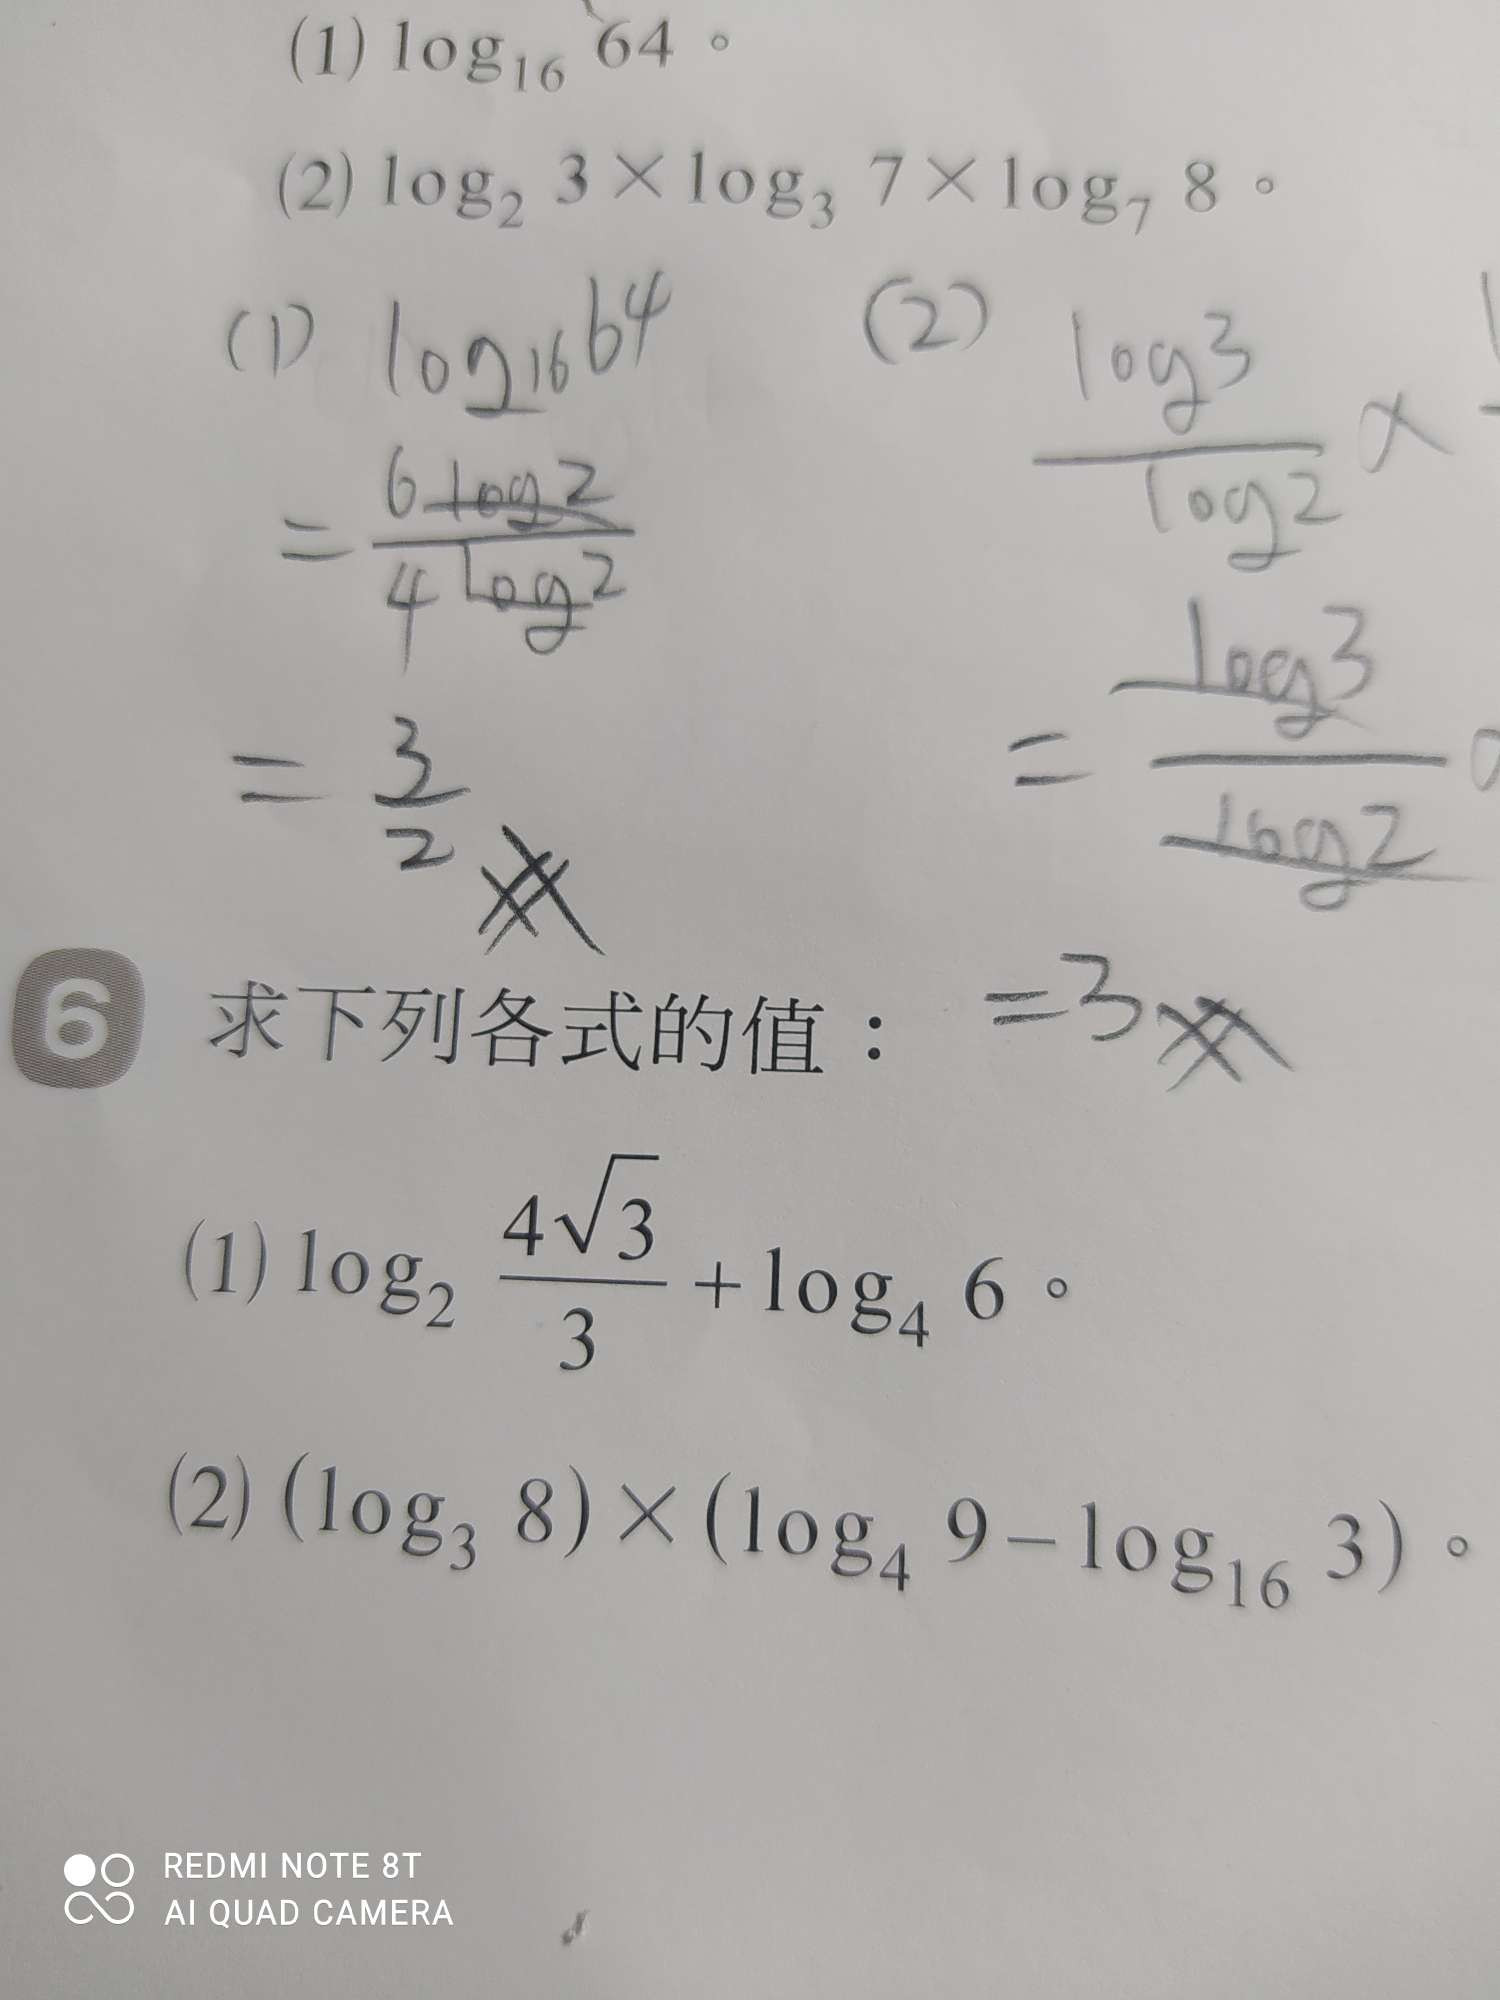 (1) log₁₆ 64。
(2) log₂ 3×log₃ 7×log₇ 8。
(1) log₁₆64
= 6log2/4log2
= 3/2
(2) log3/log2 ×
= log3/log2
=3
6 求下列各式的值：
(1) log₂ 4√3/3 + log₄ 6。
(2) (log₃ 8)×(log₄ 9−log₁₆ 3)。
REDMI NOTE 8T
AI QUAD CAMERA